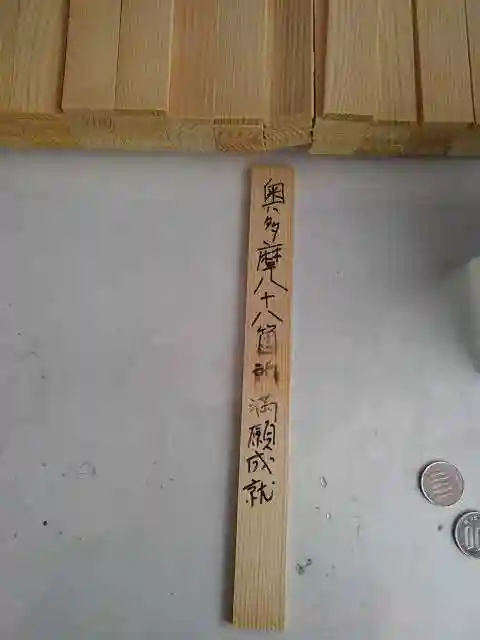 奥多摩八十八箇所満願成就
100